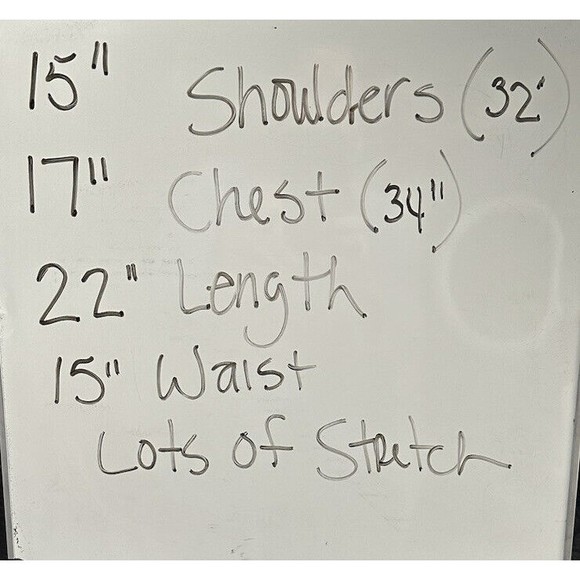 15" Shoulders (32')
17" Chest (34")
22" Length
15" Waist
Lots of Stretch